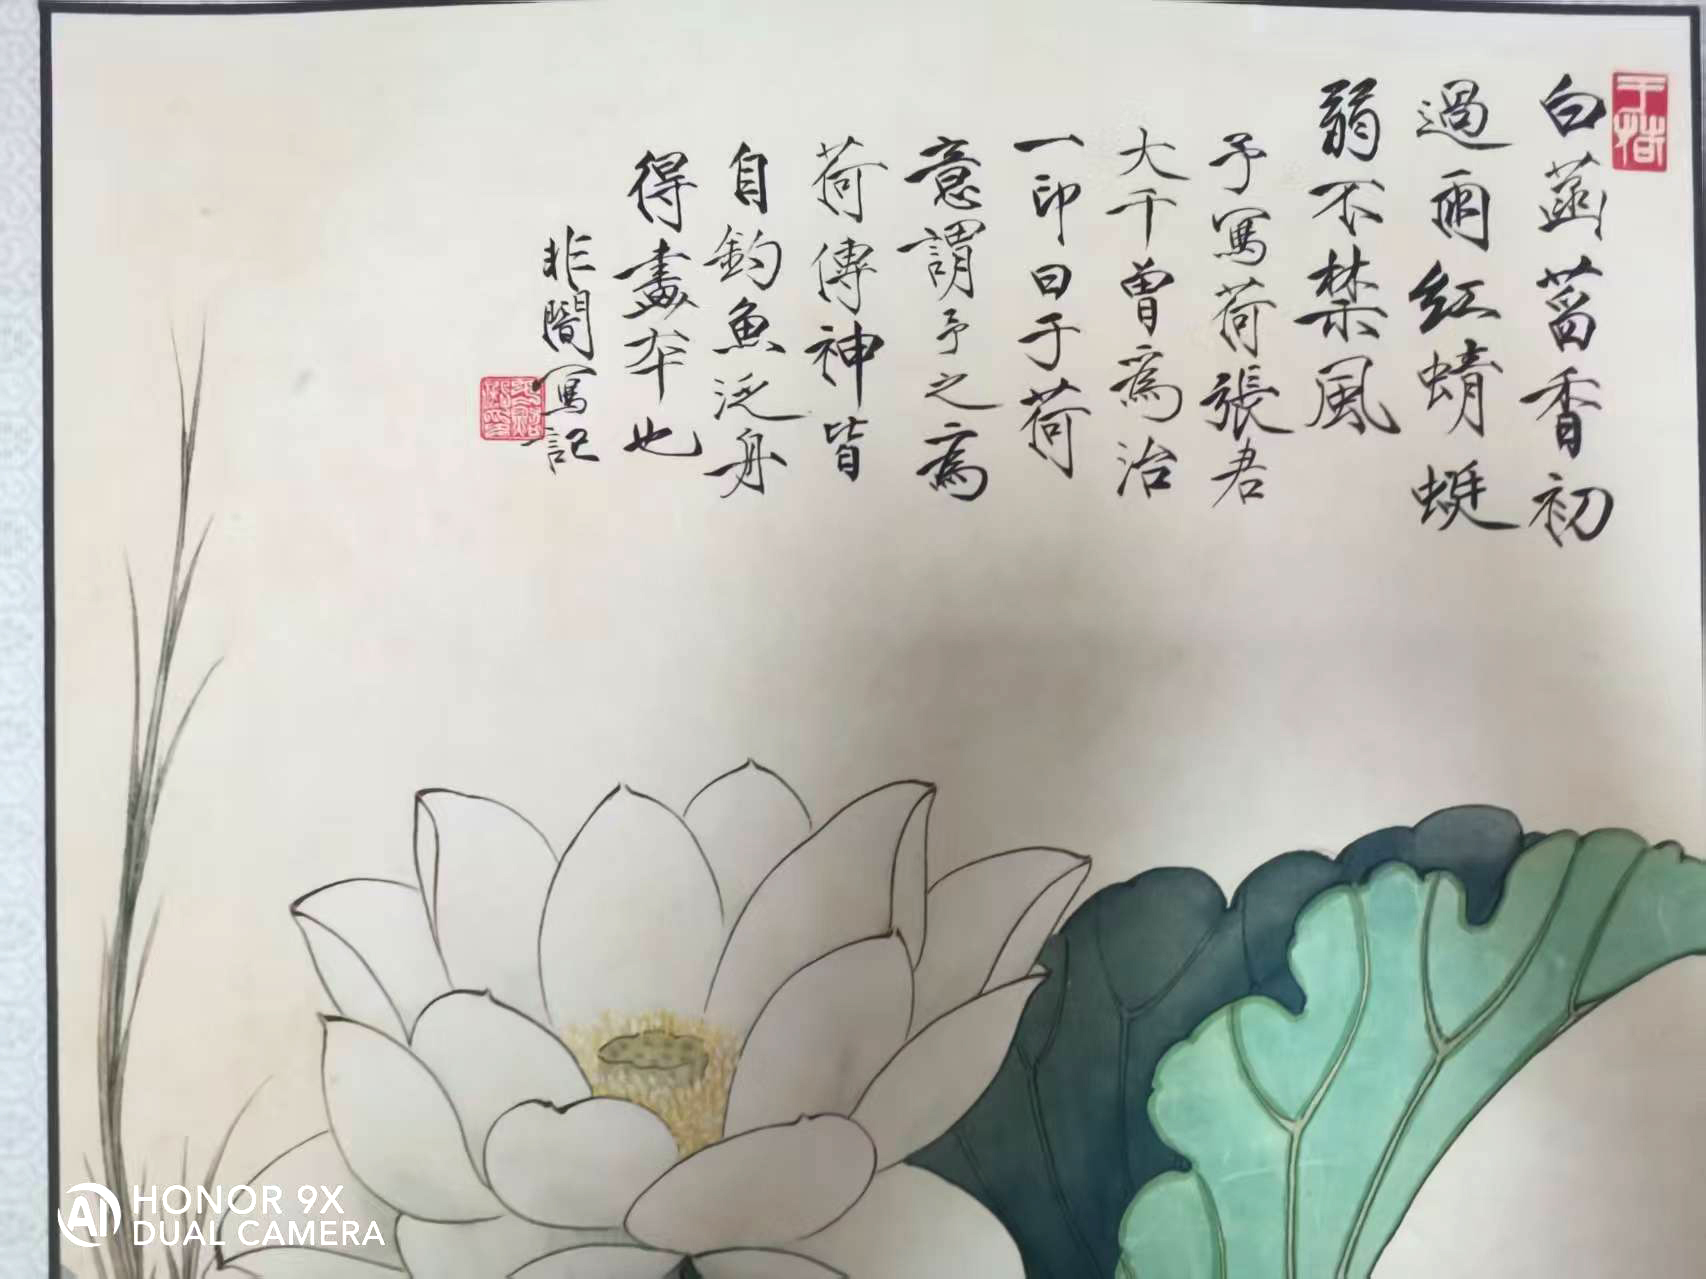 于荷
白菡萏香初
過雨紅蜻蜓
弱不禁風
予寫荷張君
大千曾為治
一印曰于荷
意謂予之寫
荷傳神皆
自釣魚泛舟
得畫本也
非闇寫記
HONOR 9X
DUAL CAMERA